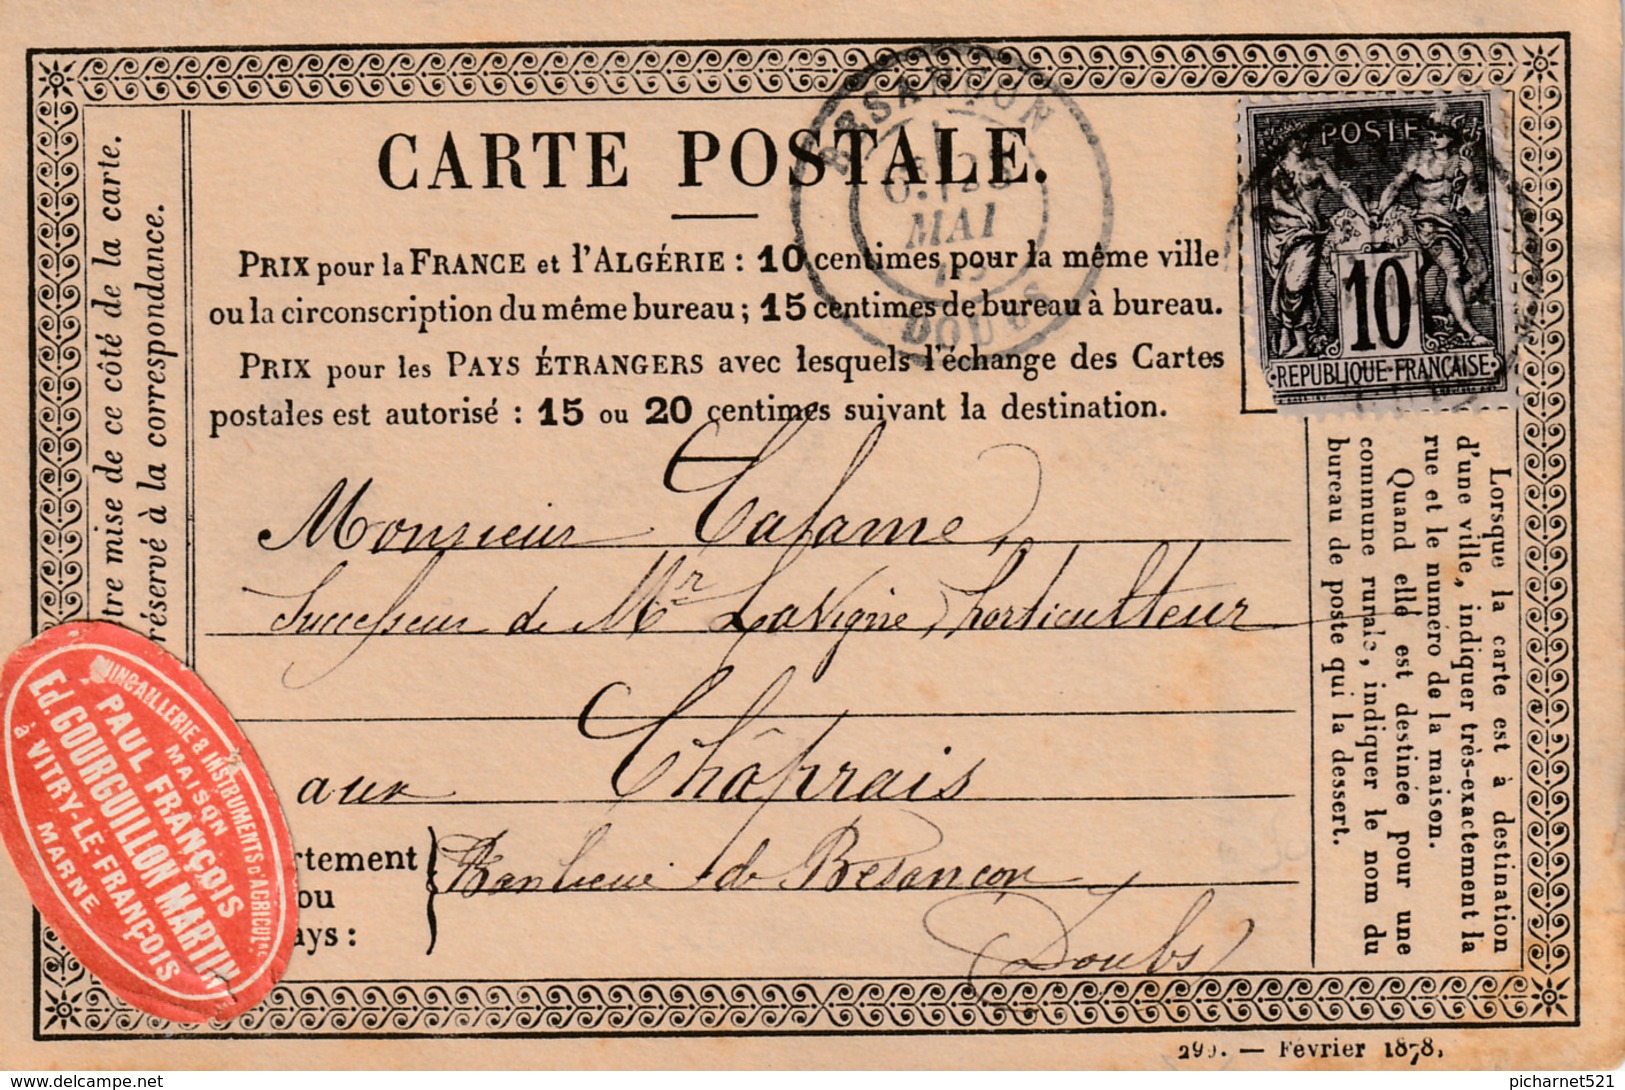 BESANÇON
28
MAI
DOUBS
CARTE POSTALE.
POSTE
10
REPUBLIQUE FRANÇAISE
PRIX pour la FRANCE et l'ALGÉRIE : 10 centimes pour la même ville
ou la circonscription du même bureau ; 15 centimes de bureau à bureau.
PRIX pour les PAYS ÉTRANGERS avec lesquels l'échange des Cartes
postales est autorisé : 15 ou 20 centimes suivant la destination.
tre mise de ce côté de la carte.
réservé à la correspondance.
Monsieur Calame,
Successeur de Mr Lavigne, horticulteur
aux Chaprais
rtement
ou
ays :
Banlieue de Besançon
Doubs
Lorsque la carte est à destination
d'une ville, indiquer très-exactement la
rue et le numéro de la maison.
Quand elle est destinée pour une
commune rurale, indiquer le nom du
bureau de poste qui la dessert.
QUINCAILLERIE & INSTRUMENTS D'AGRICULre
MAISON
PAUL FRANÇOIS
Ed. GOURGUILLON MARTIN
à VITRY-LE-FRANÇOIS
MARNE
— Février 1878.
delcampe.net
picharnet521